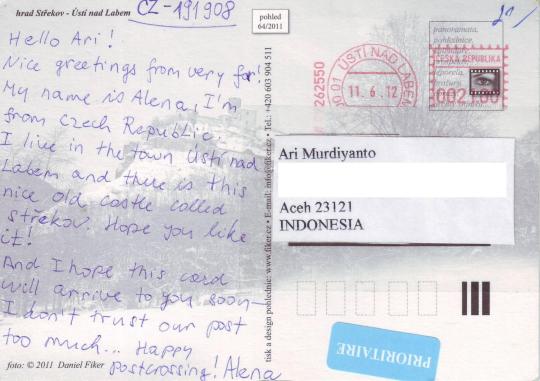 hrad Střekov - Ústí nad Labem
CZ-191908
Hello Ari!
Nice greetings from very far!
My name is Alena, I'm
from Czech Republic.
I live in the town Ústí nad
Labem and there is this
nice old castle called
Střekov. Hope you like
it!
And I hope this card
will arrive to you soon—
I don't trust our post
too much... Happy
postcrossing! Alena
foto: © 2011 Daniel Fiker
pohled
64/2011
tisk a design pohlednic: www.fiker.cz • E-mail: info@fiker.cz • Tel.: +420 603 904 511
262550
ÚSTÍ NAD LABEM
11. 6. 12
panoramata,
pohlednice,
ČESKÁ REPUBLIKA
Ari Murdiyanto
Aceh 23121
INDONESIA
PRIORITAIRE